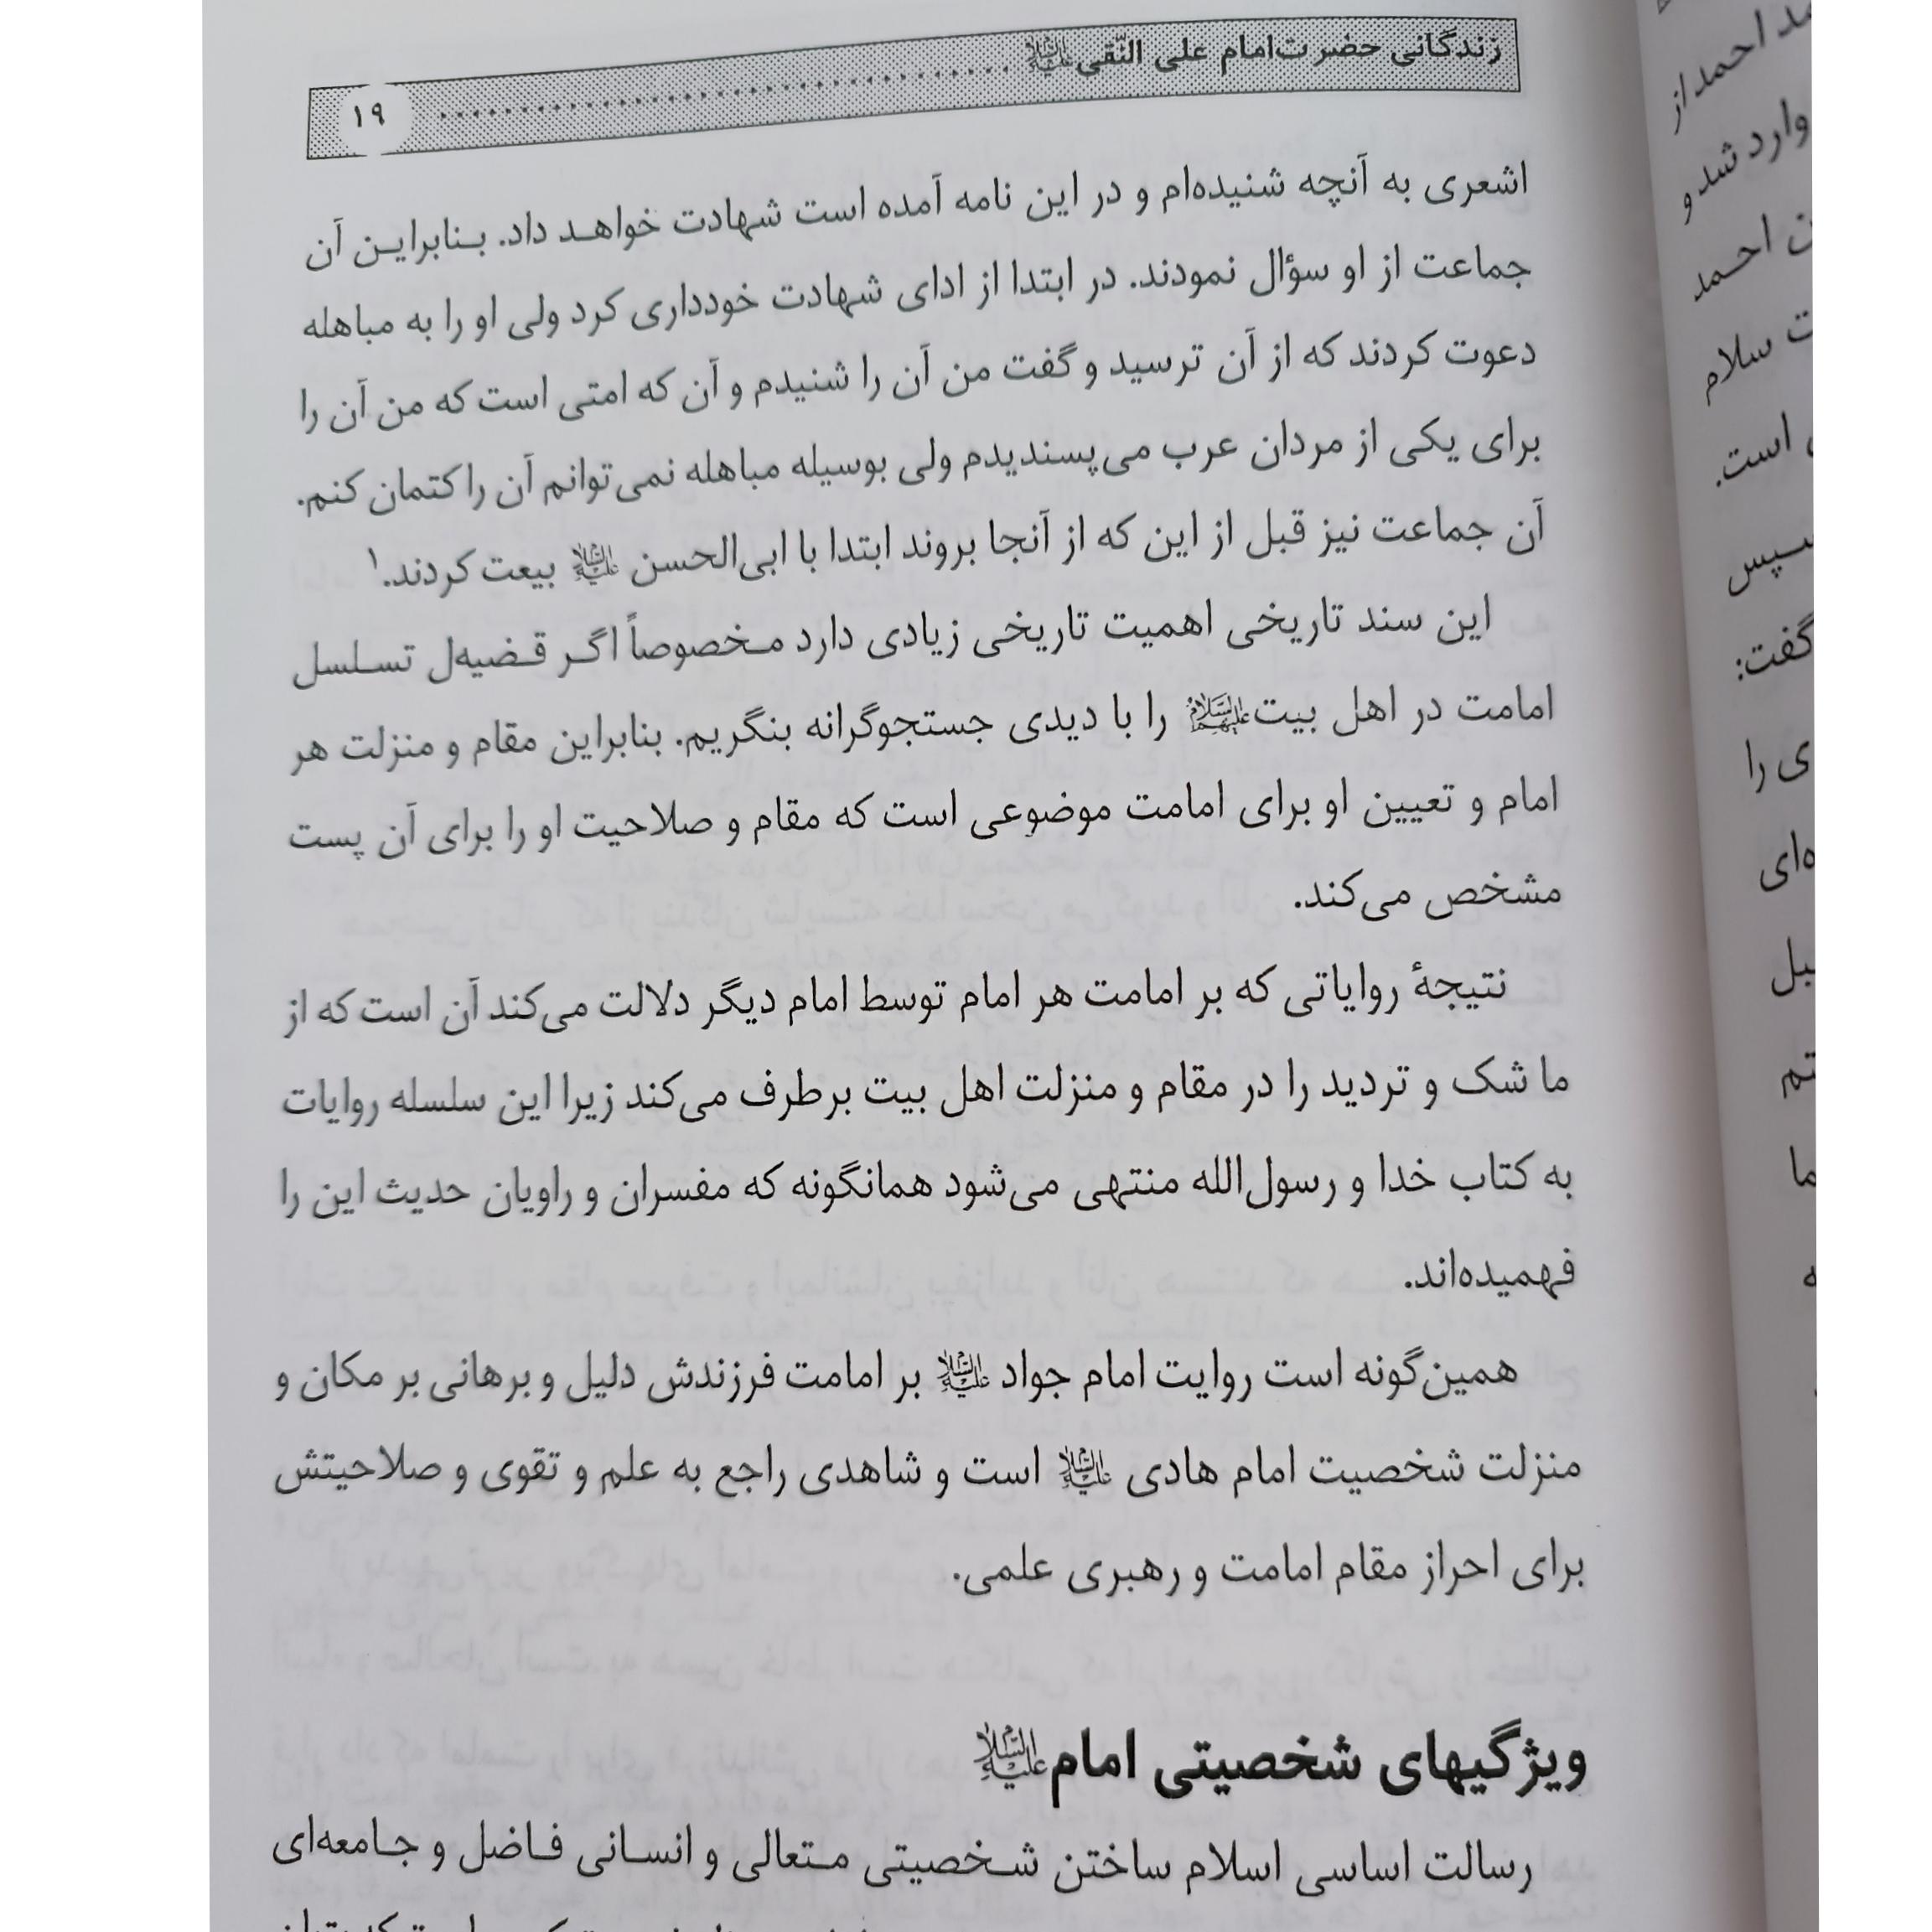 زندگانی حضرت امام علی النّقی علیه السلام ........................................ ۱۹
اشعری به آنچه شنیده‌ام و در این نامه آمده است شهادت خواهد داد. بنابراین آن
جماعت از او سؤال نمودند. در ابتدا از ادای شهادت خودداری کرد ولی او را به مباهله
دعوت کردند که از آن ترسید و گفت من آن را شنیدم و آن که امتی است که من آن را
برای یکی از مردان عرب می‌پسندیدم ولی بوسیله مباهله نمی‌توانم آن را کتمان کنم.
آن جماعت نیز قبل از این که از آنجا بروند ابتدا با ابی‌الحسن علیه السلام بیعت کردند.۱
این سند تاریخی اهمیت تاریخی زیادی دارد مخصوصاً اگر قضیه‌ل تسلسل
امامت در اهل بیت علیهم السلام را با دیدی جستجوگرانه بنگریم. بنابراین مقام و منزلت هر
امام و تعیین او برای امامت موضوعی است که مقام و صلاحیت او را برای آن پست
مشخص می‌کند.
نتیجهٔ روایاتی که بر امامت هر امام توسط امام دیگر دلالت می‌کند آن است که از
ما شک و تردید را در مقام و منزلت اهل بیت برطرف می‌کند زیرا این سلسله روایات
به کتاب خدا و رسول‌الله منتهی می‌شود همانگونه که مفسران و راویان حدیث این را
فهمیده‌اند.
همین‌گونه است روایت امام جواد علیه السلام بر امامت فرزندش دلیل و برهانی بر مکان و
منزلت شخصیت امام هادی علیه السلام است و شاهدی راجع به علم و تقوی و صلاحیتش
برای احراز مقام امامت و رهبری علمی.
ویژگیهای شخصیتی امام علیه السلام
رسالت اساسی اسلام ساختن شخصیتی متعالی و انسانی فاضل و جامعه‌ای
احمد از
وارد شد و
احمد
سلام
است.
سپس
گفت:
ی را
ه‌ای
ما